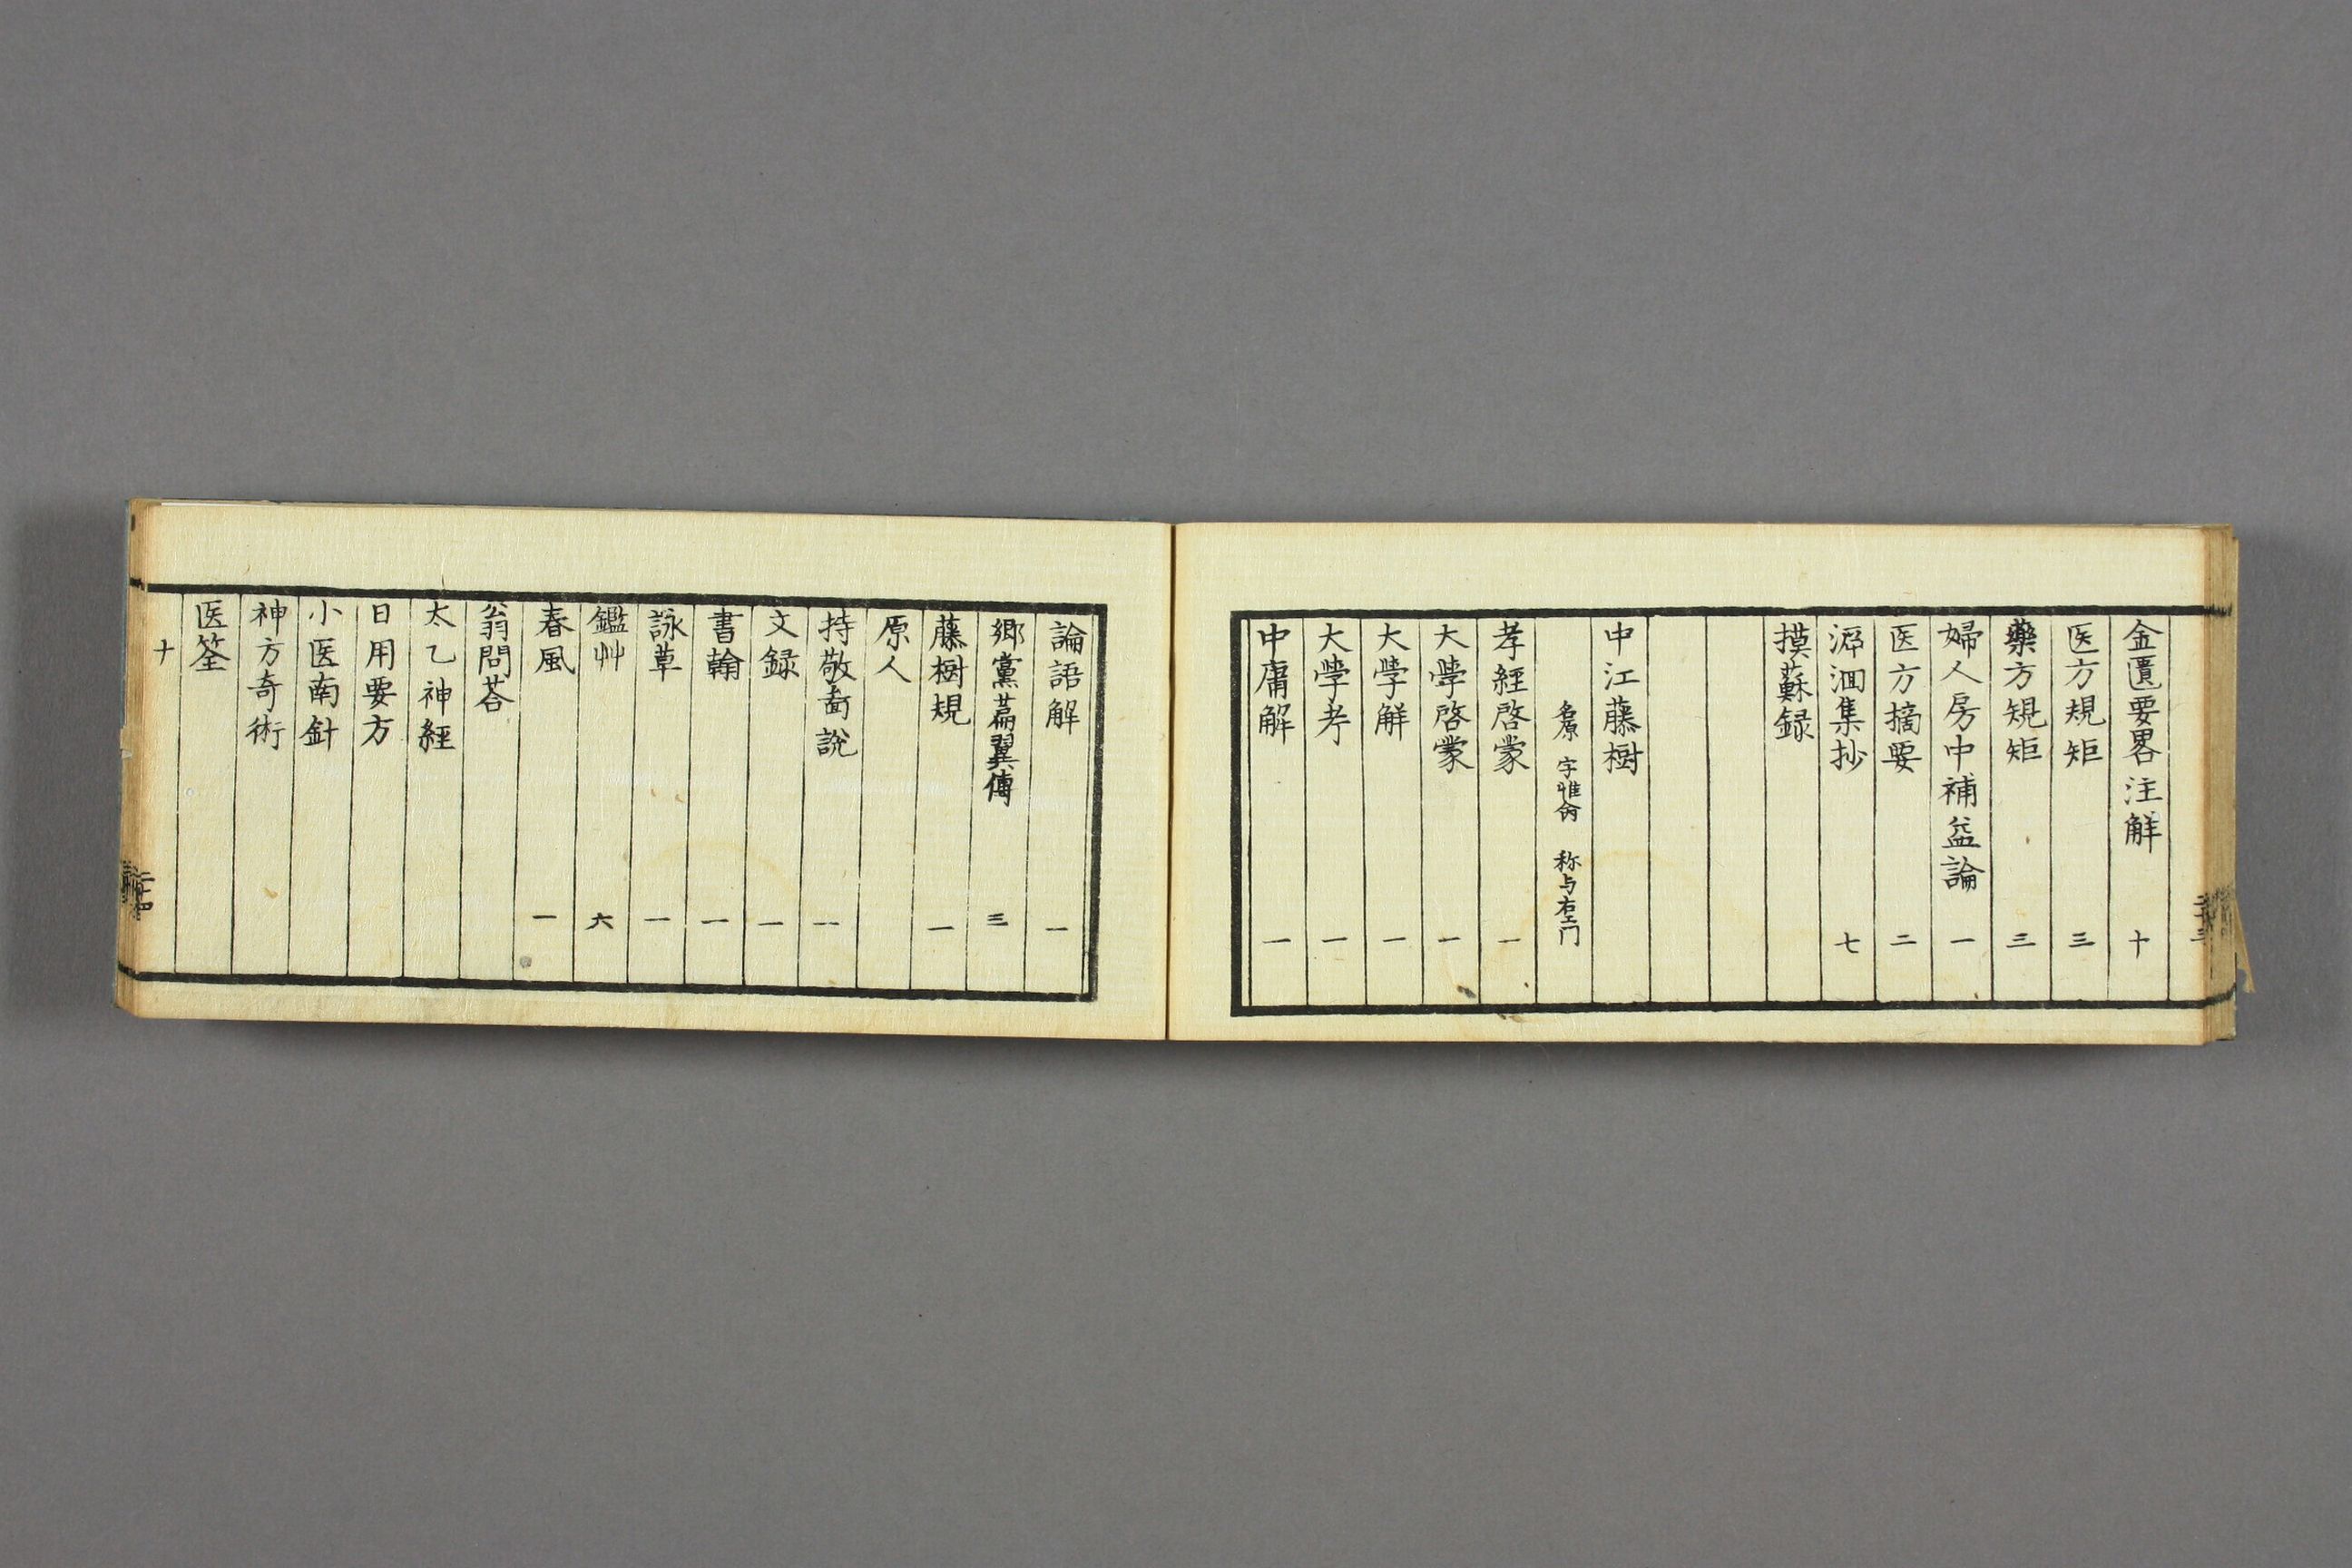 金匱要畧注解 十
医方規矩 三
藥方規矩 三
婦人房中補益論 一
医方摘要 二
泝洄集抄 七
摸蘇録
中江藤樹
名原 字惟命 称与右エ門
孝經啓蒙 一
大學啓蒙 一
大學解 一
大學考 一
中庸解 一
論語解 一
郷黨篇翼傳 三
藤樹規 一
原人
持敬啚説 一
文録 一
書翰 一
詠草 一
鑑艸 六
春風 一
翁問荅
太乙神經
日用要方
小医南針
神方奇術
医筌
十